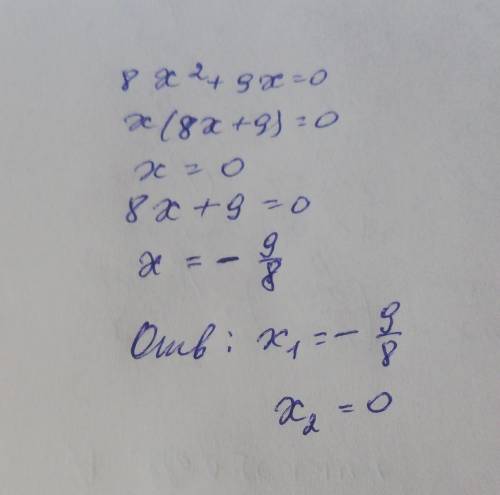 8x²+9x=0
x(8x+9)=0
x=0
8x+9=0
x=-9/8
Отв: x₁=-9/8
x₂=0